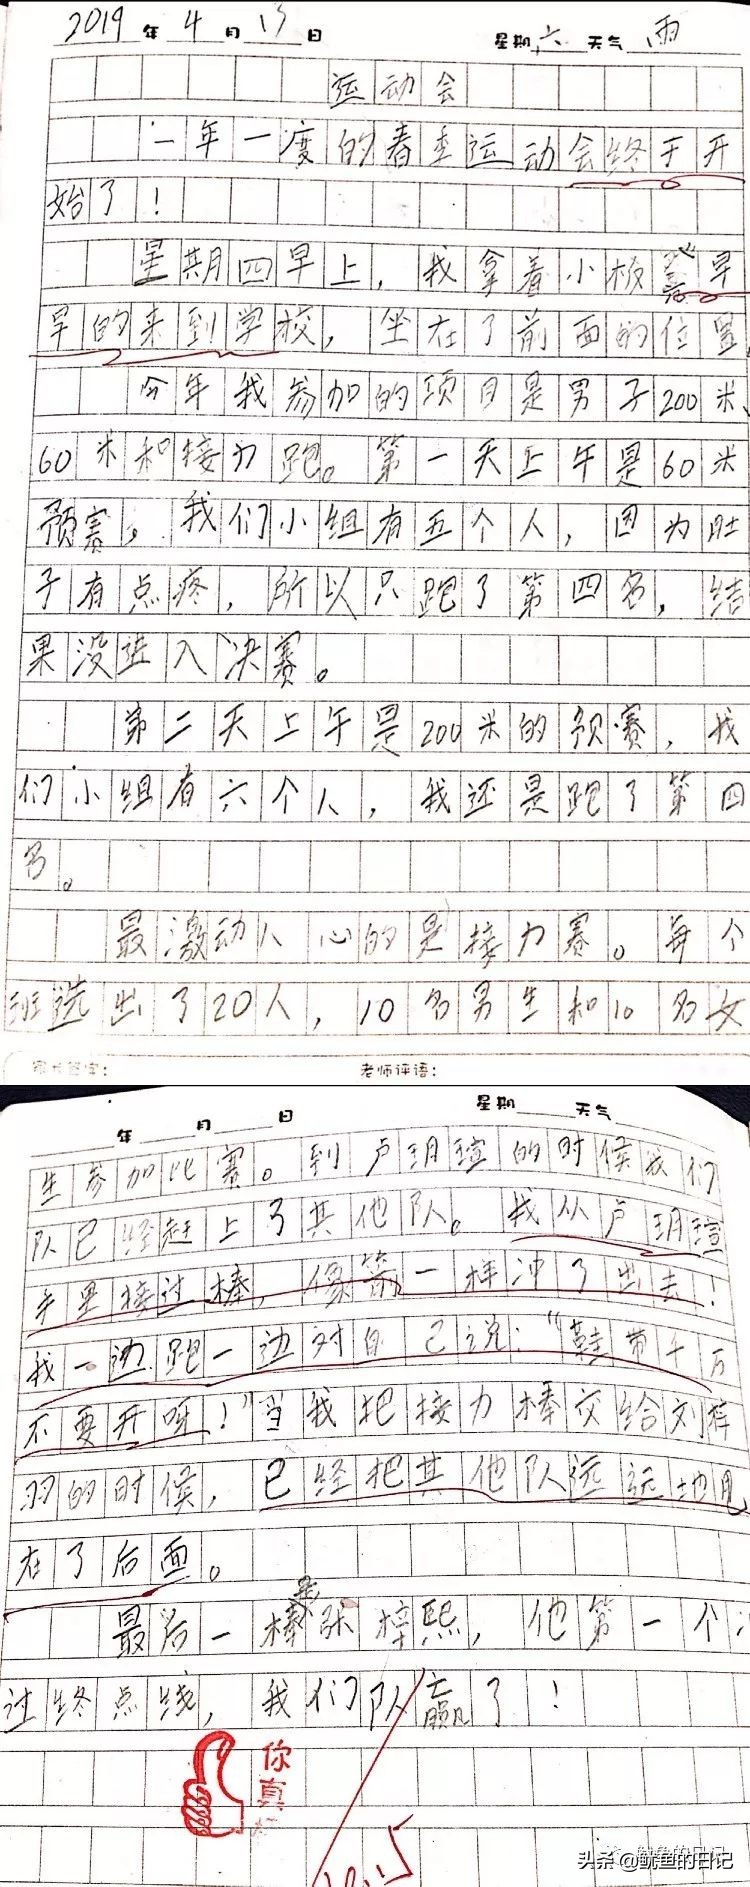 2019年4月13日 星期六 天气雨
运动会
一年一度的春季运动会终于开
始了!
星期四早上,我拿着小板凳早
早的来到学校,坐在了前面的位置。
今年我参加的项目是男子200米、
60米和接力跑。第一天上午是60米
预赛,我们小组有五个人,因为肚
子有点疼,所以只跑了第四名,结
果没进入决赛。
第二天上午是200米的预赛,我
们小组有六个人,我还是跑了第四
名。
最激动人心的是接力赛。每个
班选出了20人,10名男生和10名女
家长签字: 老师评语:
年 月 日 星期 天气
生参加比赛。到卢玥瑄的时候我们
队已经赶上了其他队。我从卢玥瑄
手里接过棒,像箭一样冲了出去!
我一边跑一边对自己说:“鞋带千万
不要开呀!”当我把接力棒交给刘梓
羽的时候,已经把其他队远远地甩
在了后面。
最后一棒是张梓熙,他第一个冲
过终点线,我们队赢了!
你真
头条@鱿鱼的日记